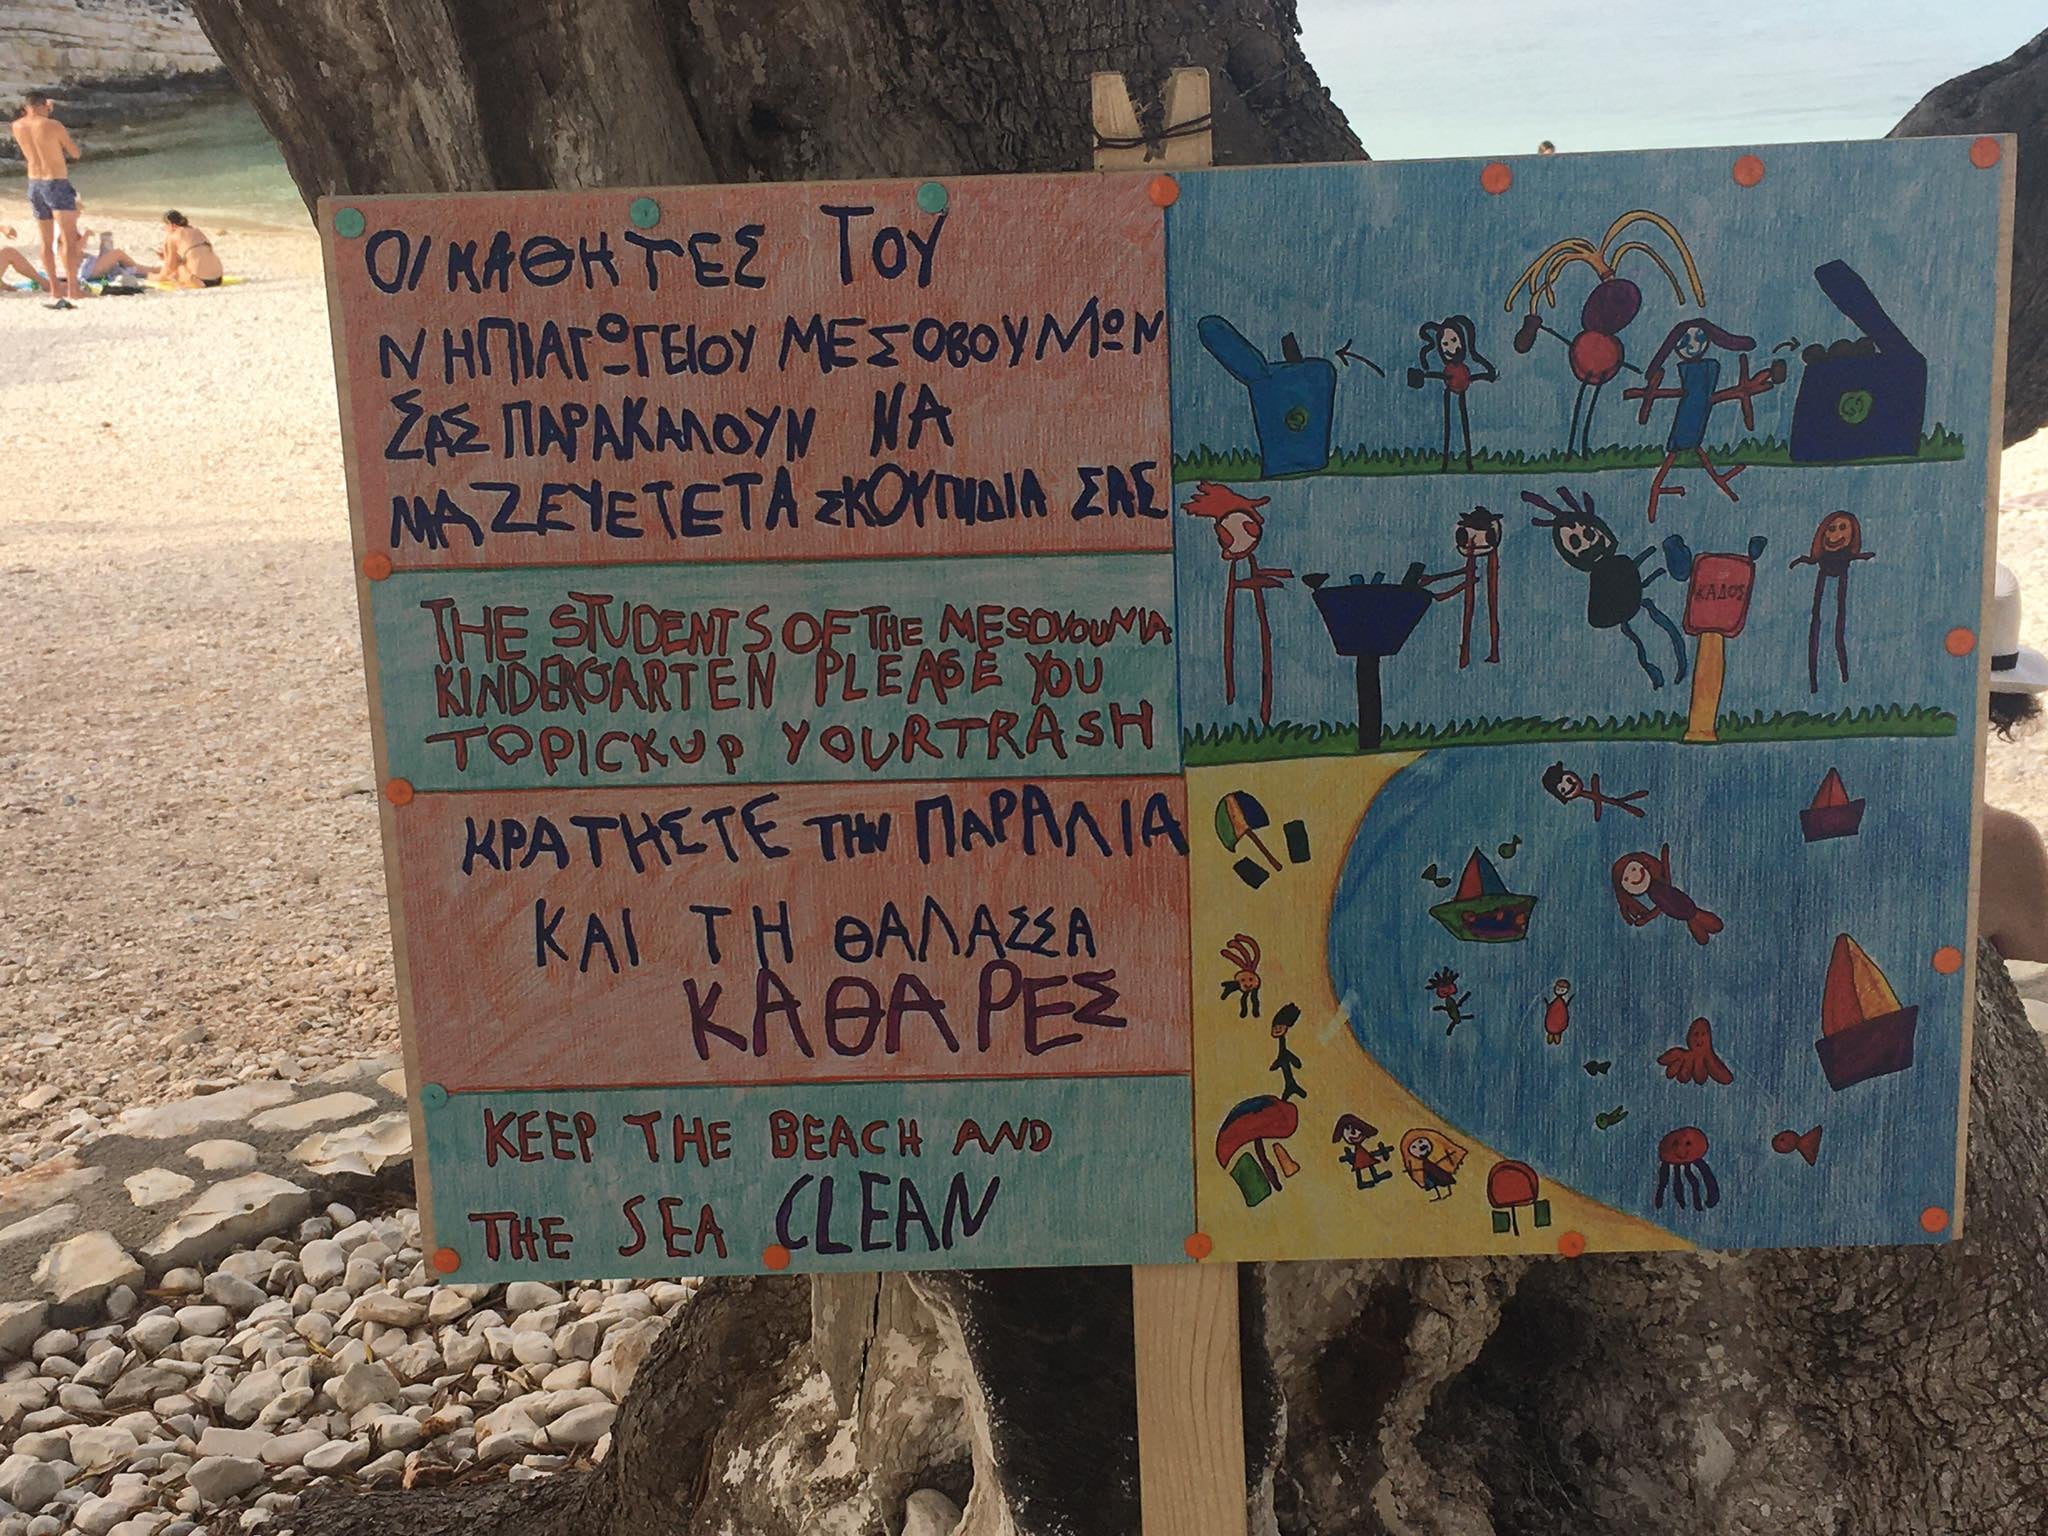 ΟΙ ΜΑΘΗΤΕΣ ΤΟΥ
ΝΗΠΙΑΓΩΓΕΙΟΥ ΜΕΣΟΒΟΥΝΙΩΝ
ΣΑΣ ΠΑΡΑΚΑΛΟΥΝ ΝΑ
ΜΑΖΕΥΕΤΕ ΤΑ ΣΚΟΥΠΙΔΙΑ ΣΑΣ
THE STUDENTS OF THE MESOVOUNIA
KINDERGARTEN PLEASE YOU
TO PICK UP YOUR TRASH
ΚΡΑΤΗΣΤΕ ΤΗΝ ΠΑΡΑΛΙΑ
ΚΑΙ ΤΗ ΘΑΛΑΣΣΑ
ΚΑΘΑΡΕΣ
KEEP THE BEACH AND
THE SEA CLEAN
ΚΑΔΟΣ